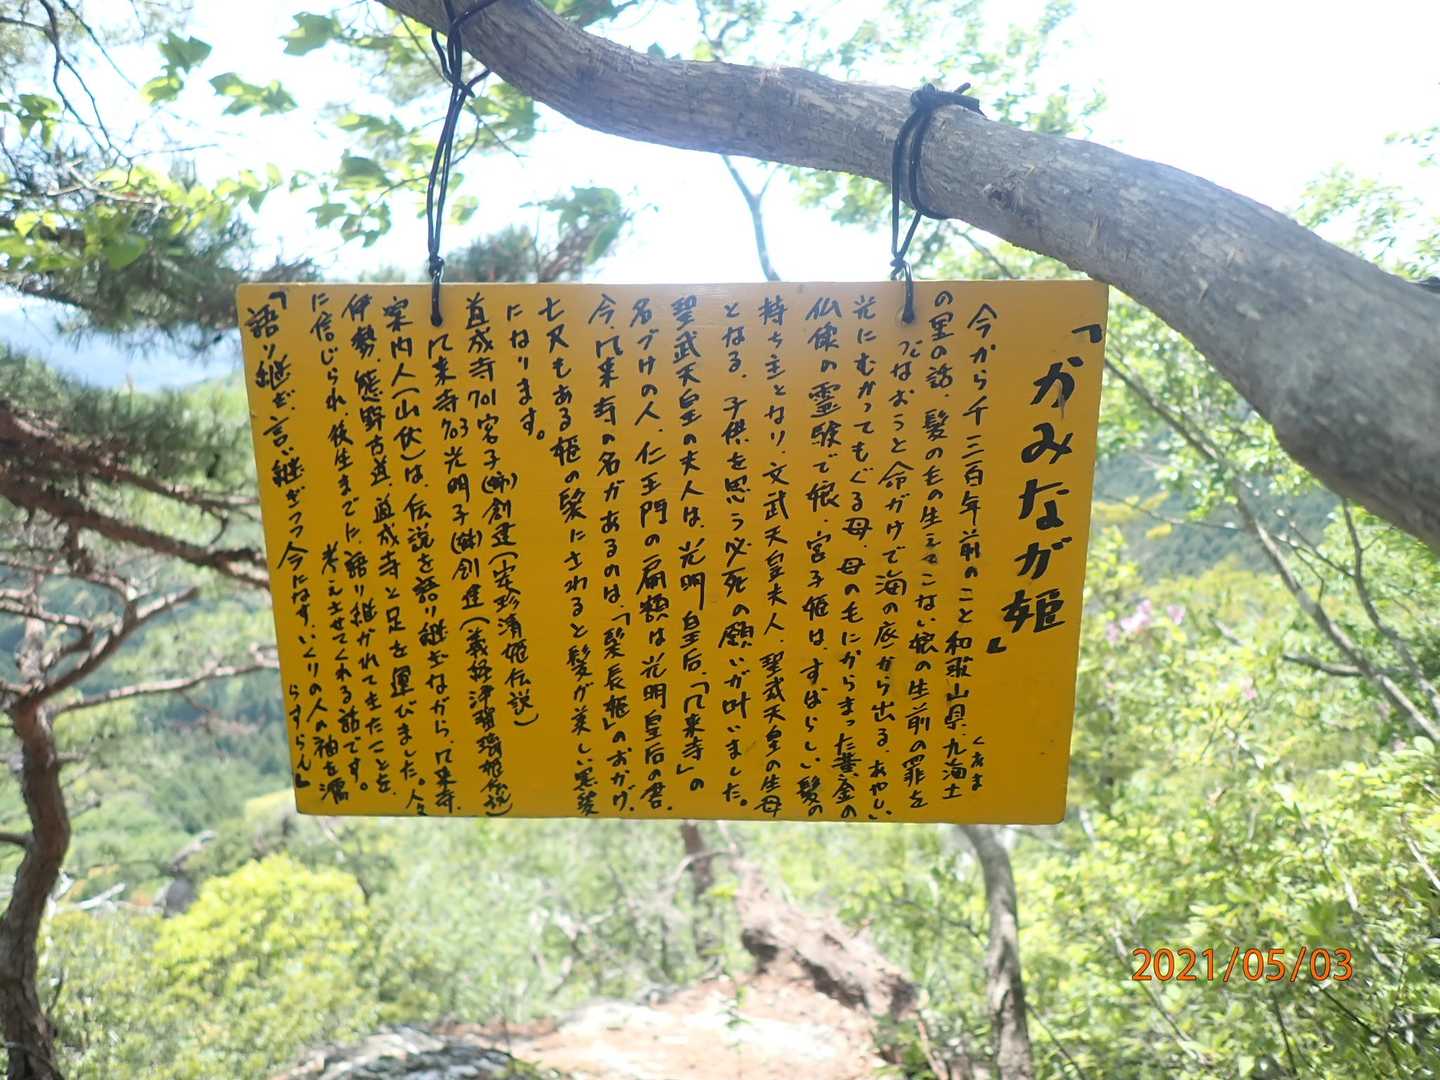 「かみなが姫」
今から千三百年前のこと和歌山県、九海士
くあま
の里の話、髪の毛の生えてこない娘の生前の罪を
つぐなおうと命がけで海の底から出る、あやしい
光にむかってもぐる母、母の毛にからまった黄金の
仏像の霊験で娘、宮子姫は、すばらしい髪の
持ち主となり、文武天皇夫人、聖武天皇の生母
となる、子供を思う必死の願いが叶いました。
聖武天皇の夫人は、光明皇后、「鳳来寺」の
名づけの人、仁王門の扁額は光明皇后の書、
今、鳳来寺の名があるのは、「髪長姫」のおかげ、
七尺もある姫の髪にさわると髪が美しい黒髪
になります。
道成寺701宮子(姉)創建(安珍清姫伝説)
鳳来寺703光明子(妹)創建(義経浄瑠璃姫伝説)
案内人(山伏)は、伝説を語り継ぎながら、鳳来寺、
伊勢、熊野古道、道成寺と足を運びました。人々
に信じられ、後生までに語り継がれてきたことを、
考えさせてくれる話です。
「語り継ぎ、言い継ぎつつ今になす、いくりの人の袖を濡
らすらん」
2021/05/03